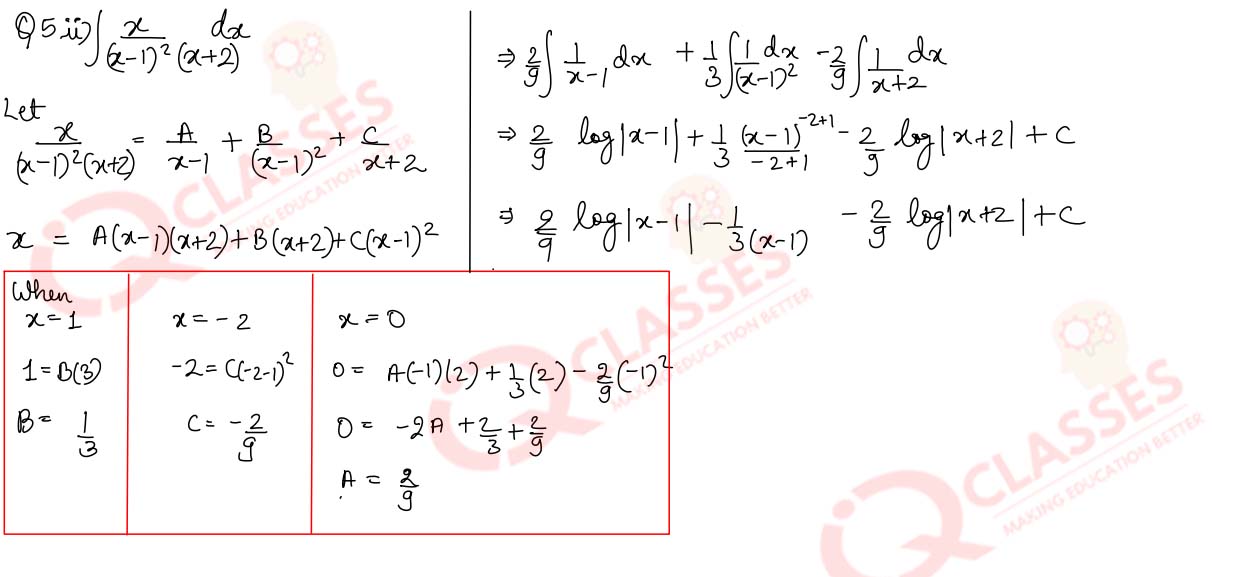 Q5.ii) ∫ x/((x-1)² (x+2)) dx
Let
x/((x-1)²(x+2)) = A/(x-1) + B/(x-1)² + C/(x+2)
x = A(x-1)(x+2)+B(x+2)+C(x-1)²
When
x=1
1=B(3)
B= 1/3
x=-2
-2=C(-2-1)²
C=-2/9
x=0
0= A(-1)(2)+1/3(2)-2/9(-1)²
0= -2A+2/3+2/9
A = 2/9
⇒ 2/9 ∫ 1/(x-1) dx + 1/3 ∫ 1/(x-1)² dx -2/9 ∫ 1/(x+2) dx
⇒ 2/9 log|x-1|+1/3 (x-1)^(-2+1)/(-2+1) - 2/9 log|x+2|+C
⇒ 2/9 log|x-1| - 1/3(x-1) - 2/9 log|x+2|+C
CLASSES
MAKING EDUCATION BETTER
CLASSES
MAKING EDUCATION BETTER
CLASSES
MAKING EDUCATION BETTER